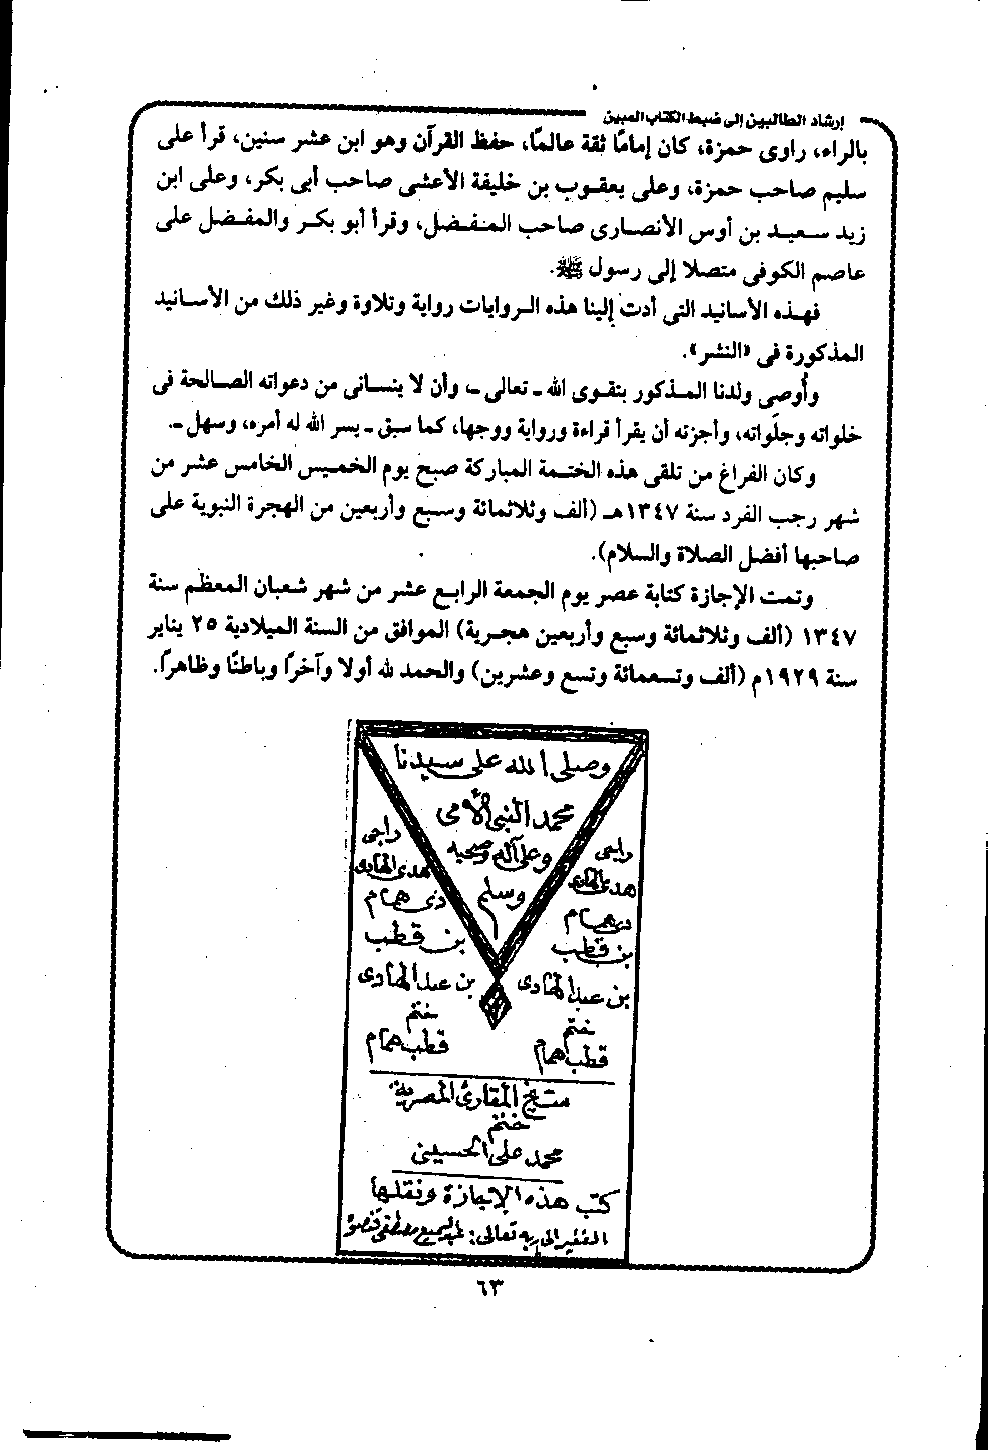 إرشاد الطالبين إلى ضبط الكتاب المبين
بالراء، راوى حمزة، كان إمامًا ثقة عالمًا، حفظ القرآن وهو ابن عشر سنين، قرأ على
سليم صاحب حمزة، وعلى يعقوب بن خليفة الأعشى صاحب أبى بكر، وعلى ابن
زيد سعيد بن أوس الأنصارى صاحب المفضل، وقرأ أبو بكر والمفضل على
عاصم الكوفى متصلا إلى رسول ﷺ.
فهذه الأسانيد التى أدت إلينا هذه الروايات رواية وتلاوة وغير ذلك من الأسانيد
المذكورة فى «النشر».
وأُوصى ولدنا المذكور بتقوى الله ـ تعالى ـ، وأن لا ينسانى من دعواته الصالحة فى
خلواته وجلَواته، وأجزته أن يقرأ قراءة ورواية ووجها، كما سبق ـ يسر الله له أمره، وسهل ـ.
وكان الفراغ من تلقى هذه الختمة المباركة صبح يوم الخميس الخامس عشر من
شهر رجب الفرد سنة ١٣٤٧هـ (ألف وثلاثمائة وسبع وأربعين من الهجرة النبوية على
صاحبها أفضل الصلاة والسلام).
وتمت الإجازة كتابة عصر يوم الجمعة الرابع عشر من شهر شعبان المعظم سنة
١٣٤٧ (ألف وثلاثمائة وسبع وأربعين هجرية) الموافق من السنة الميلادية ٢٥ يناير
سنة ١٩٢٩م (ألف وتسعمائة وتسع وعشرين) والحمد لله أولا وآخرًا وباطنًا وظاهرًا.
وصلى الله على سيدنا
محمد النبى الأمى
وعلى آله وصحبه
وسلم
راجى
هدى الهادى
ذى همام
بن قطب
بن عبد الهادى
ختم
قطب همام
راجى
هدى الهادى
ذى همام
بن قطب
بن عبد الهادى
ختم
قطب همام
شيخ المقارئ المصرية
ختم
محمد على الحسينى
كتب هذه الإجازة ونقلها
الفقير إلى ربه تعالى: مصطفى
٦٣